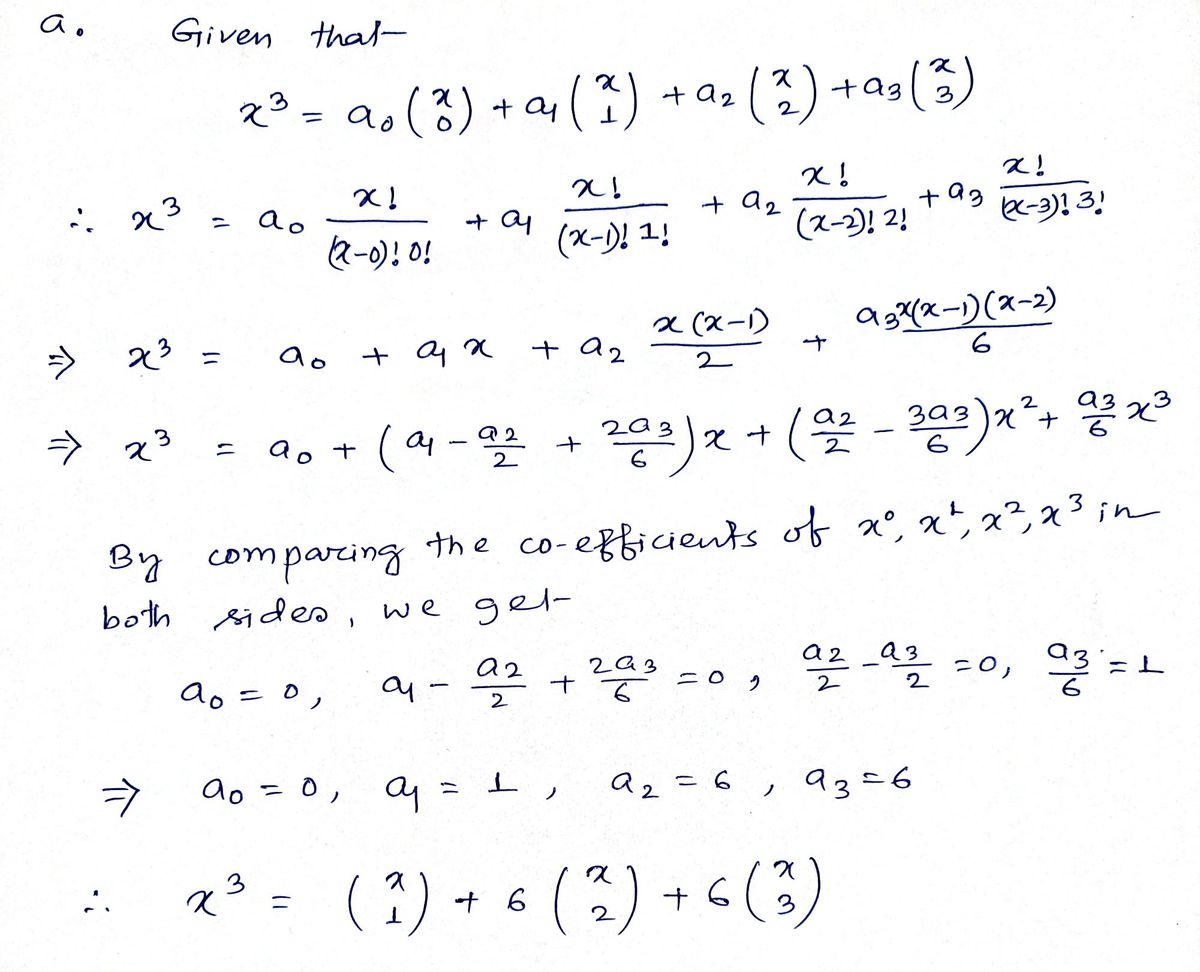 a. Given that-
x³ = a₀ (x 0) + a₁ (x 1) + a₂ (x 2) + a₃ (x 3)
∴ x³ = a₀ x!/((x-0)! 0!) + a₁ x!/((x-1)! 1!) + a₂ x!/((x-2)! 2!) + a₃ x!/((x-3)! 3!)
⇒ x³ = a₀ + a₁ x + a₂ x(x-1)/2 + a₃x(x-1)(x-2)/6
⇒ x³ = a₀ + (a₁ - a₂/2 + 2a₃/6)x + (a₂/2 - 3a₃/6)x² + a₃/6 x³
By comparing the co-efficients of x⁰, x¹, x², x³ in
both sides, we get-
a₀ = 0, a₁ - a₂/2 + 2a₃/6 = 0, a₂/2 - a₃/2 = 0, a₃/6 = 1
⇒ a₀ = 0, a₁ = 1, a₂ = 6, a₃ = 6
∴ x³ = (x 1) + 6 (x 2) + 6 (x 3)